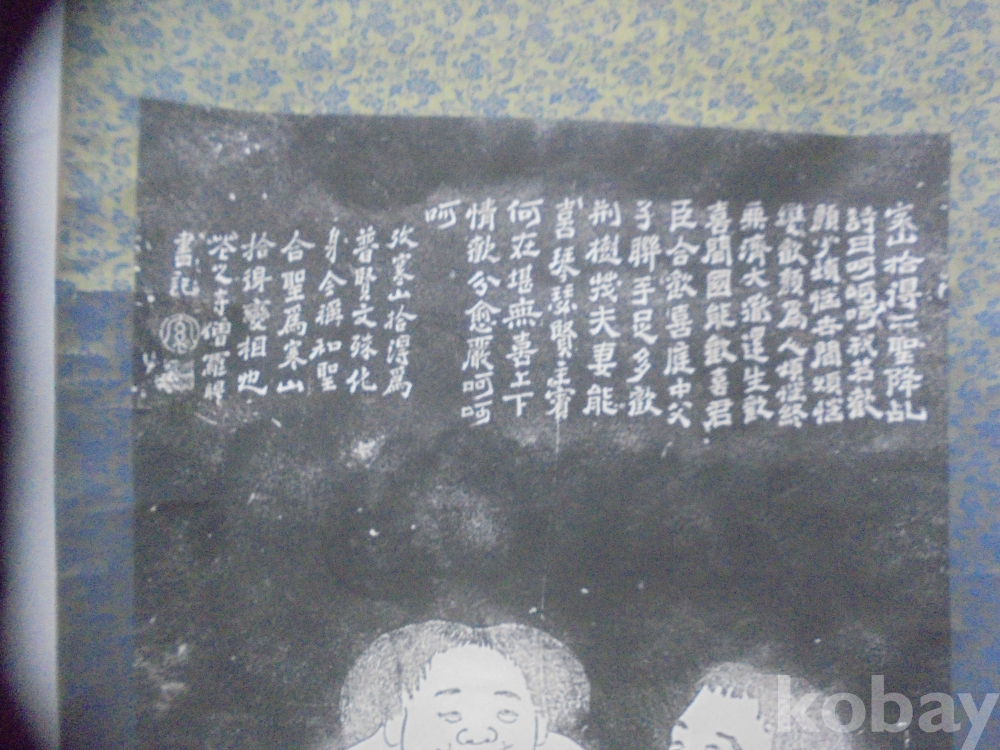 寒山拾得二聖降乩
詩曰呵呵呵我若歡
顏少煩惱世間煩惱
變歡顏為人煩惱終
無濟大道還生歡
喜間國能歡喜君
臣合歡喜庭中父
子聯手足多歡
荆樹茂夫妻能
喜琴瑟賢主賓
何在堪無喜上下
情歡分愈嚴呵呵
呵
攷寒山拾得為
普賢文殊化
身今稱和聖
合聖為寒山
拾得變相也
寺僧
書記
kobay